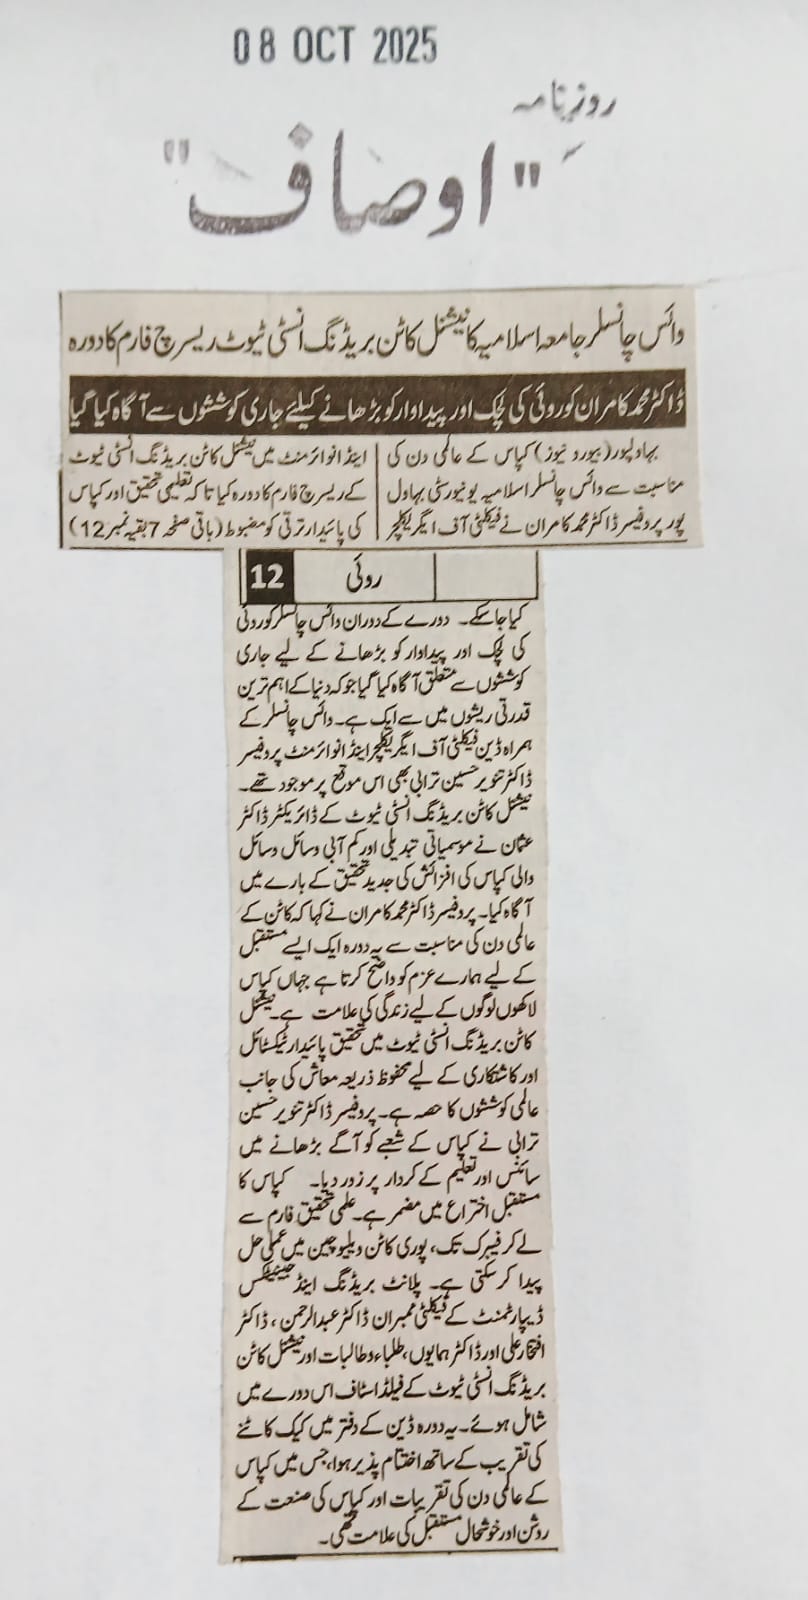 08 OCT 2025
روزنامہ
"اوصاف"
وائس چانسلر جامعہ اسلامیہ کا نیشنل کاٹن بریڈنگ انسٹی ٹیوٹ ریسرچ فارم کا دورہ
ڈاکٹر محمد کامران کو روئی کی لچک اور پیداوار کو بڑھانے کیلئے جاری کوششوں سے آگاہ کیا گیا
بہاولپور (بیورو نیوز) کپاس کے عالمی دن کی
مناسبت سے وائس چانسلر اسلامیہ یونیورسٹی بہاول
پور پروفیسر ڈاکٹر محمد کامران نے فیکلٹی آف ایگریکلچر
اینڈ انوائرمنٹ میں نیشنل کاٹن بریڈنگ انسٹی ٹیوٹ
کے ریسرچ فارم کا دورہ کیا تاکہ تعلیمی تحقیق اور کپاس
کی پائیدار ترقی کو مضبوط (باقی صفحہ 7 بقیہ نمبر 12)
روئی 12
کیا جا سکے۔ دورے کے دوران وائس چانسلر کو روئی
کی لچک اور پیداوار کو بڑھانے کے لیے جاری
کوششوں سے متعلق آگاہ کیا گیا جو کہ دنیا کے اہم ترین
قدرتی ریشوں میں سے ایک ہے۔ وائس چانسلر کے
ہمراہ ڈین فیکلٹی آف ایگریکلچر اینڈ انوائرمنٹ پروفیسر
ڈاکٹر تنویر حسین ترابی بھی اس موقع پر موجود تھے۔
نیشنل کاٹن بریڈنگ انسٹی ٹیوٹ کے ڈائریکٹر ڈاکٹر
عثمان نے موسمیاتی تبدیلی اور کم آبی وسائل وسائل
والی کپاس کی افزائش کی جدید تحقیق کے بارے میں
آگاہ کیا۔ پروفیسر ڈاکٹر محمد کامران نے کہا کہ کاٹن کے
عالمی دن کی مناسبت سے یہ دورہ ایک ایسے مستقبل
کے لیے ہمارے عزم کو واضح کرتا ہے جہاں کپاس
لاکھوں لوگوں کے لیے زندگی کی علامت ہے۔ نیشنل
کاٹن بریڈنگ انسٹی ٹیوٹ میں تحقیق پائیدار ٹیکسٹائل
اور کاشتکاری کے لیے محفوظ ذریعہ معاش کی جانب
عالمی کوششوں کا حصہ ہے۔ پروفیسر ڈاکٹر تنویر حسین
ترابی نے کپاس کے شعبے کو آگے بڑھانے میں
سائنس اور تعلیم کے کردار پر زور دیا۔ کپاس کا
مستقبل اختراع میں مضمر ہے۔ علمی تحقیق فارم سے
لے کر فیبرک تک، پوری کاٹن ویلیو چین میں عملی حل
پیدا کر سکتی ہے۔ پلانٹ بریڈنگ اینڈ جینیٹکس
ڈیپارٹمنٹ کے فیکلٹی ممبران ڈاکٹر عبدالرحمن، ڈاکٹر
افتخار علی اور ڈاکٹر ہمایوں، طلباء و طالبات اور نیشنل کاٹن
بریڈنگ انسٹی ٹیوٹ کے فیلڈ اسٹاف اس دورے میں
شامل ہوئے۔ یہ دورہ ڈین کے دفتر میں کیک کاٹنے
کی تقریب کے ساتھ اختتام پذیر ہوا، جس میں کپاس
کے عالمی دن کی تقریبات اور کپاس کی صنعت کے
روشن اور خوشحال مستقبل کی علامت تھی۔